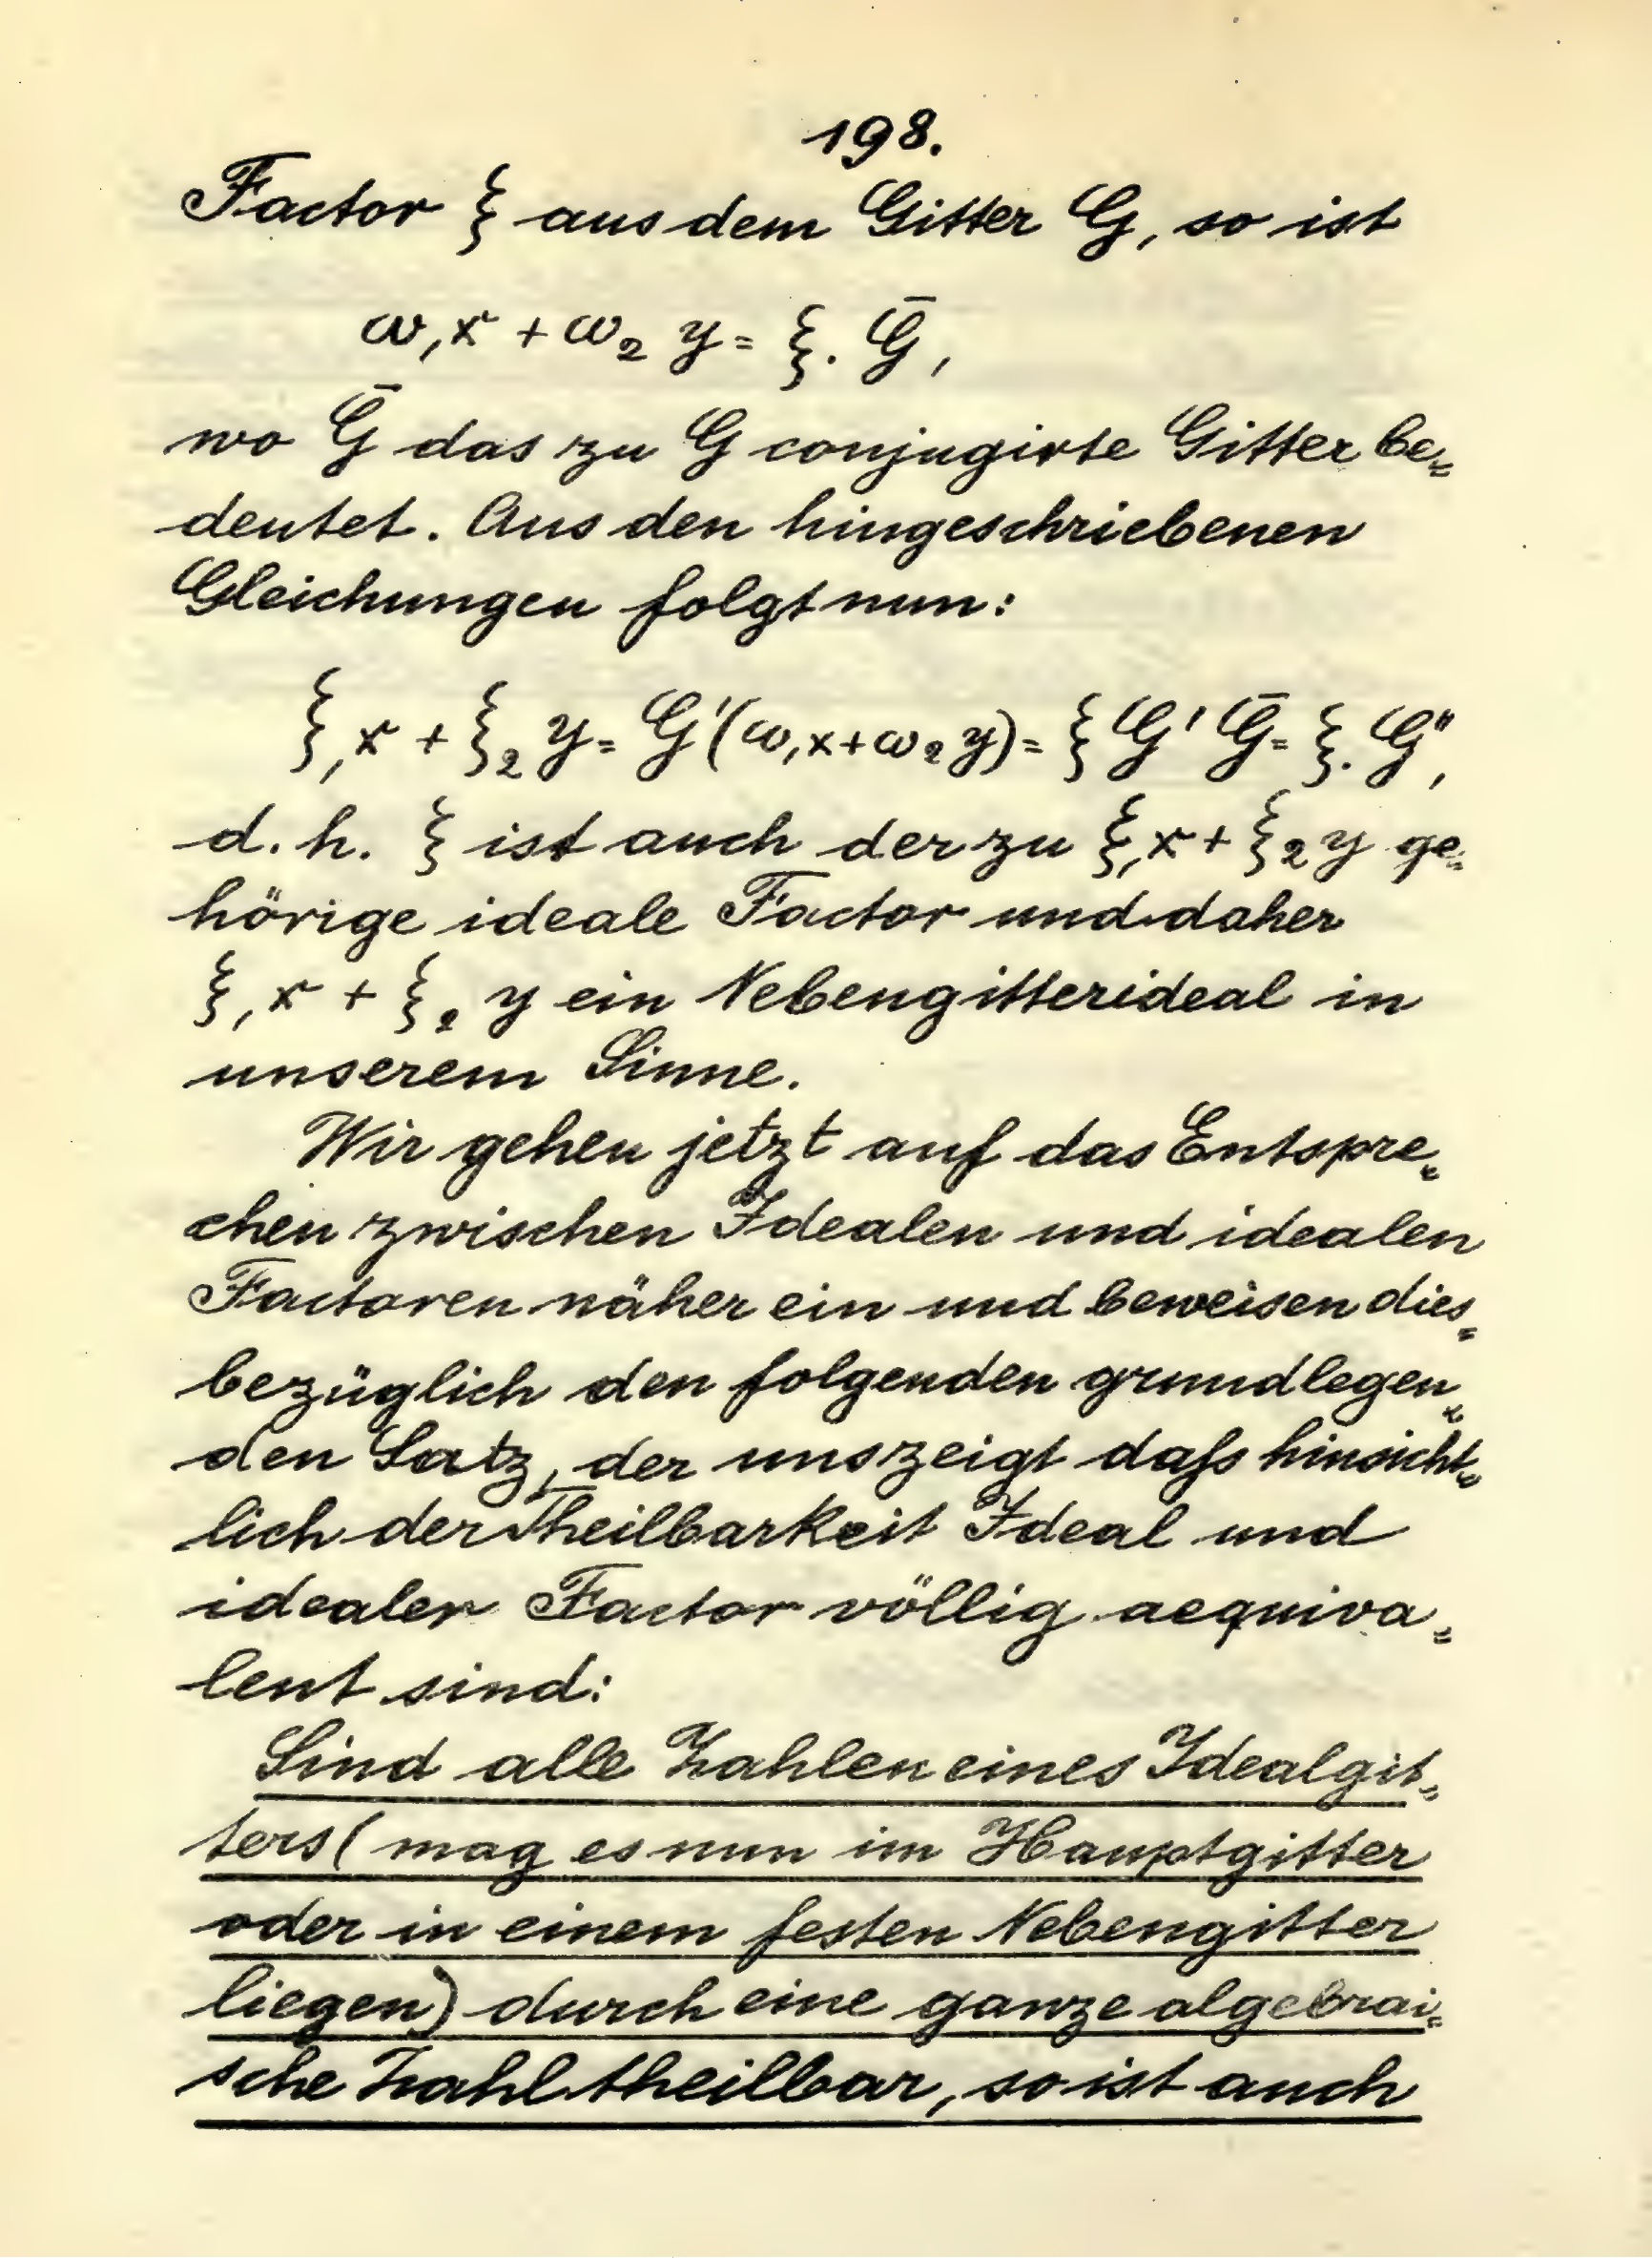 198.
Factor ξ aus dem Gitter G, so ist
ω₁x + ω₂ y = ξ. Ḡ,
wo Ḡ das zu G conjugirte Gitter be-
deutet. Aus den hingeschriebenen
Gleichungen folgt nun:
ξ₁x + ξ₂ y = G'(ω₁x+ω₂y) = ξ G' Ḡ = ξ. G",
d. h. ξ ist auch der zu ξ₁x + ξ₂y ge-
hörige ideale Factor und daher
ξ₁x + ξ₂ y ein Nebengitterideal in
unserem Sinne.
Wir gehen jetzt auf das Entspre-
chen zwischen Idealen und idealen
Factoren näher ein und beweisen dies-
bezüglich den folgenden grundlegen-
den Satz, der uns zeigt daſs hinsicht-
lich der Theilbarkeit Ideal und
idealer Factor völlig aequiva-
lent sind:
Sind alle Zahlen eines Idealgit-
ters (mag es nun im Hauptgitter
oder in einem festen Nebengitter
liegen) durch eine ganze algebrai-
sche Zahl theilbar, so ist auch